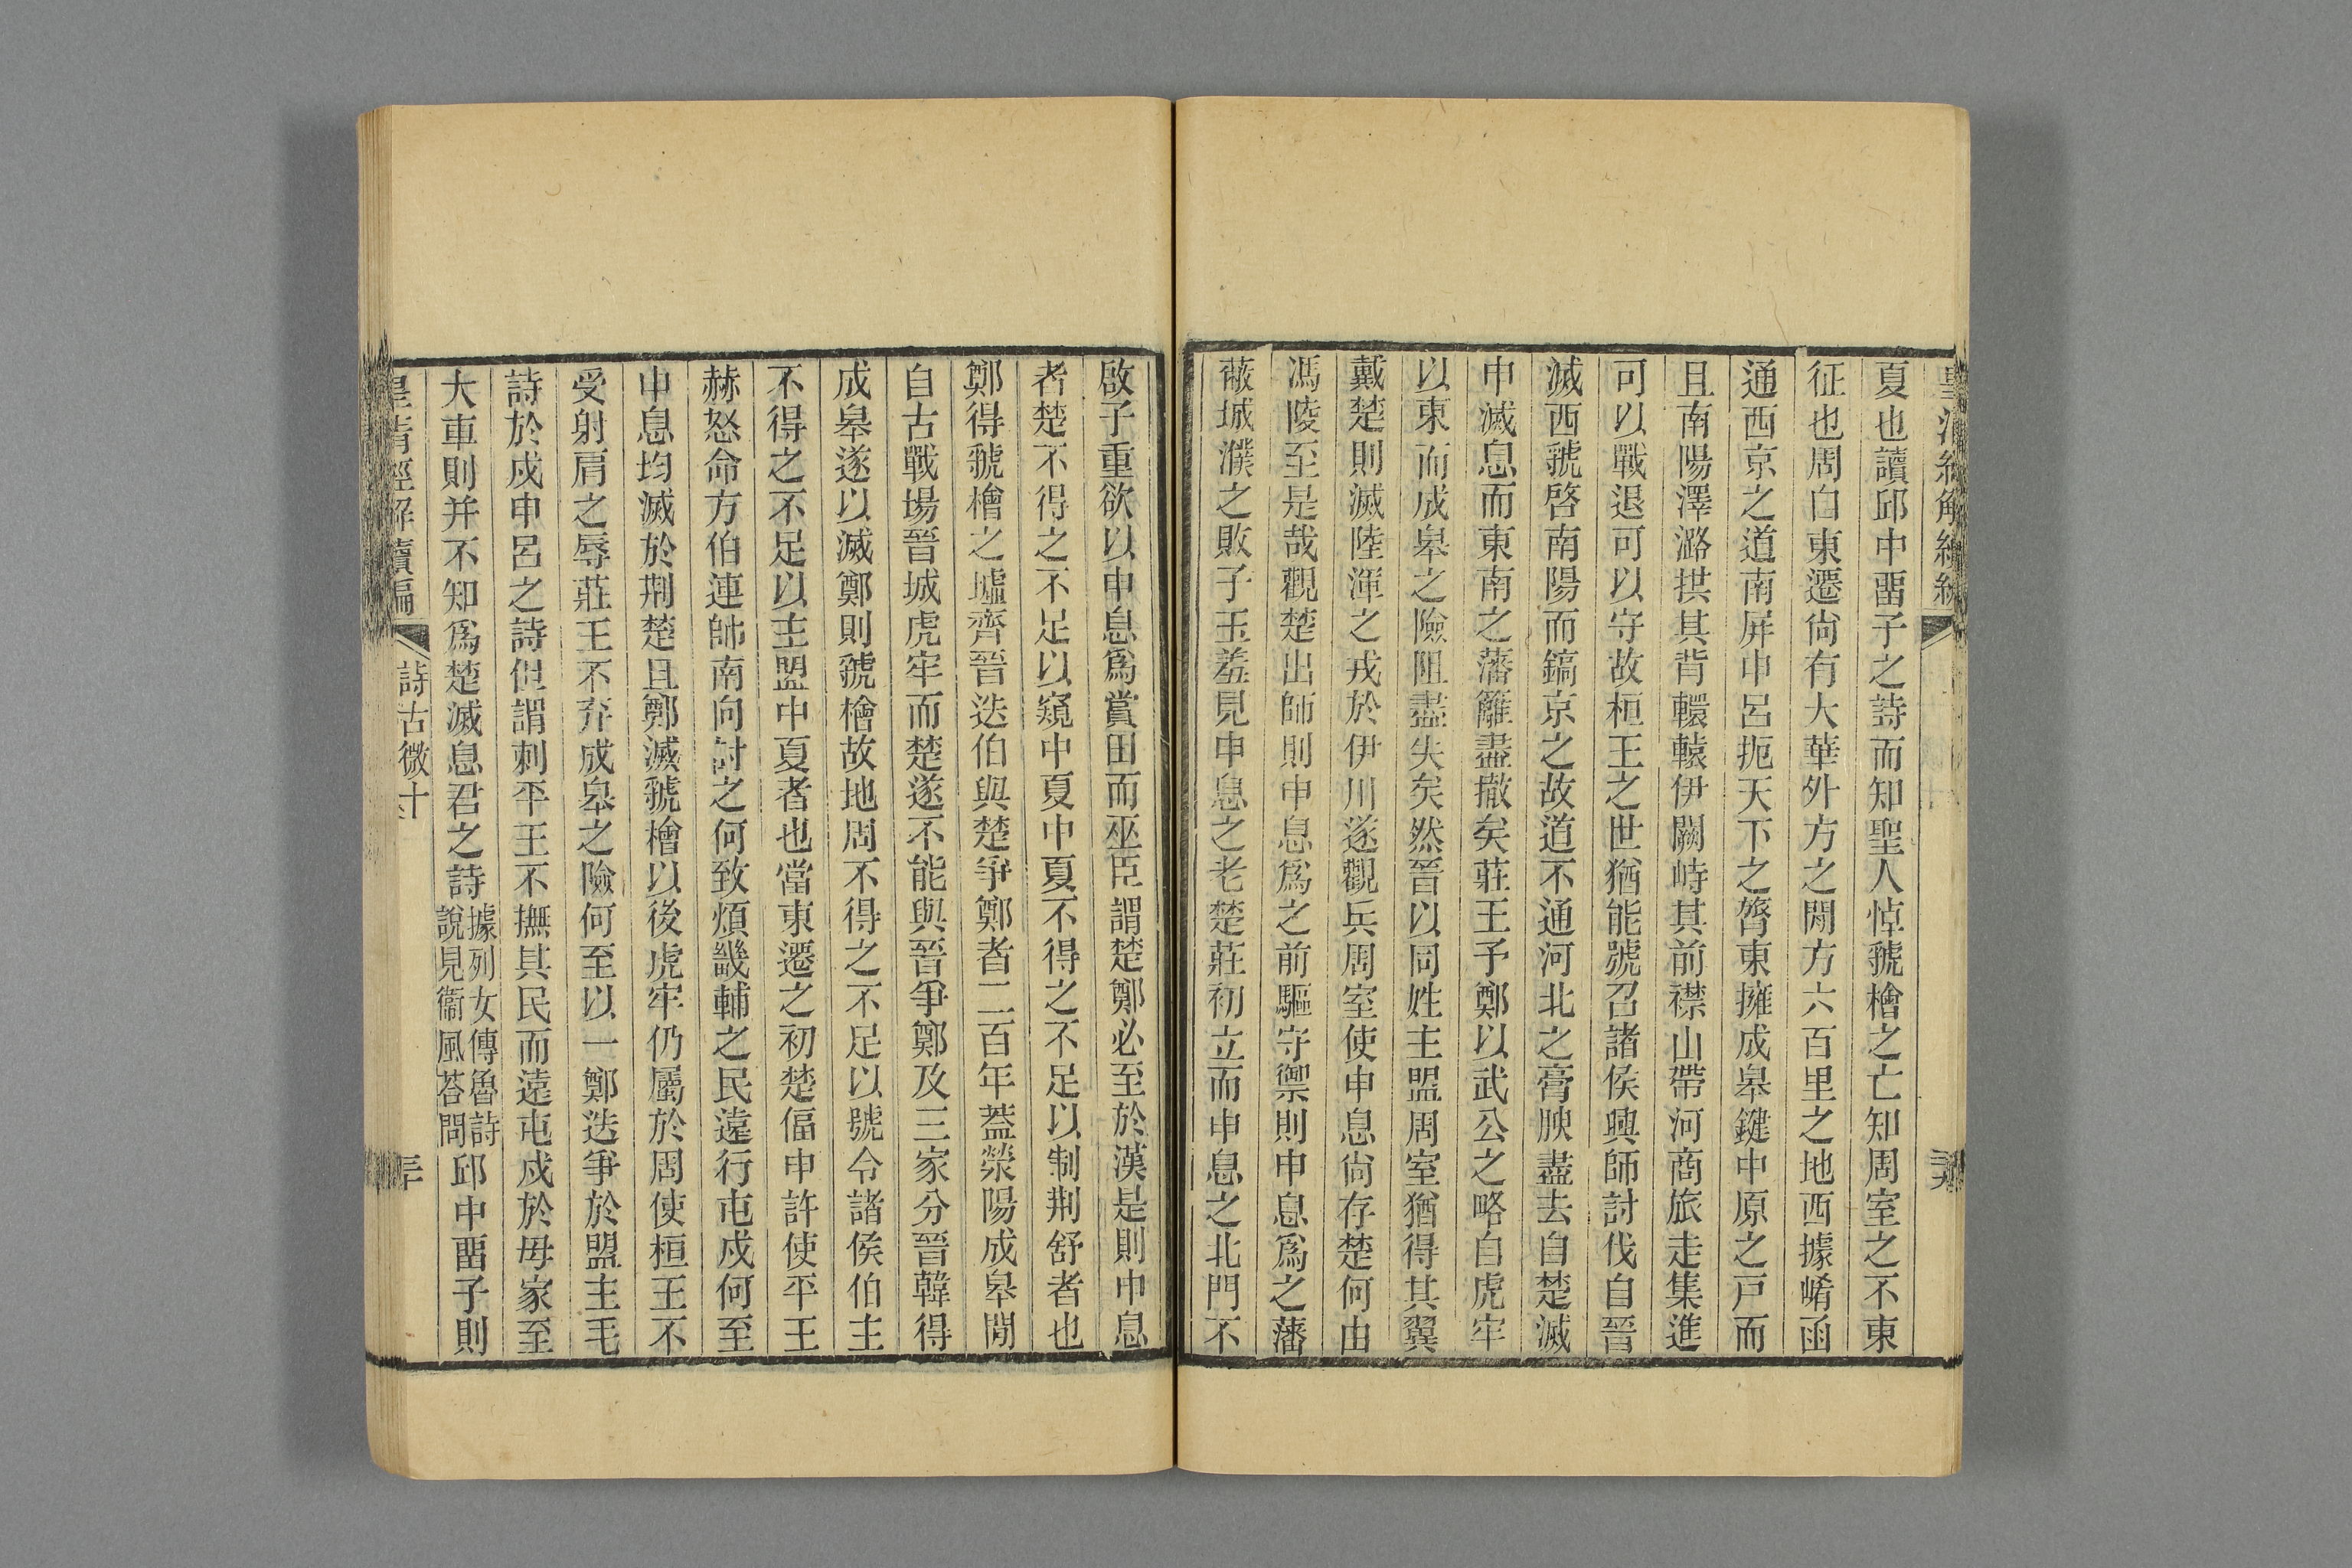 夏也讀邱中畱子之詩而知聖人悼虢檜之亡知周室之不東
征也周自東遷尙有大華外方之閒方六百里之地西據崤函
通西京之道南屏申呂扼天下之膂東擁成皋鍵中原之戸而
且南陽澤潞拱其背轘轅伊闕峙其前襟山帶河商旅走集進
可以戰退可以守故桓王之世猶能號召諸侯興師討伐自晉
滅西虢啓南陽而鎬京之故道不通河北之膏腴盡去自楚滅
申滅息而東南之藩籬盡撤矣莊王予鄭以武公之略自虎牢
以東而成皋之險阻盡失矣然晉以同姓主盟周室猶得其翼
戴楚則滅陸渾之戎於伊川遂觀兵周室使申息尙存楚何由
馮陵至是哉觀楚出師則申息爲之前驅守禦則申息爲之藩
蔽城濮之敗子玉羞見申息之老楚莊初立而申息之北門不
啟子重欲以申息爲賞田而巫臣謂楚鄭必至於漢是則申息
者楚不得之不足以窺中夏中夏不得之不足以制荆舒者也
鄭得虢檜之墟齊晉迭伯與楚爭鄭者二百年葢滎陽成皋閒
自古戰場晉城虎牢而楚遂不能與晉爭鄭及三家分晉韓得
成皋遂以滅鄭則虢檜故地周不得之不足以號令諸侯伯主
不得之不足以主盟中夏者也當東遷之初楚偪申許使平王
赫怒命方伯連帥南向討之何致煩畿輔之民遠行屯戍何至
申息均滅於荆楚且鄭滅虢檜以後虎牢仍屬於周使桓王不
受射肩之辱莊王不弃成皋之險何至以一鄭迭爭於盟主毛
詩於戍申呂之詩但謂刺平王不撫其民而遠屯戍於母家至
大車則并不知爲楚滅息君之詩據列女傳魯詩說見衞風荅問邱中畱子則
皇清經解續編
詩古微十